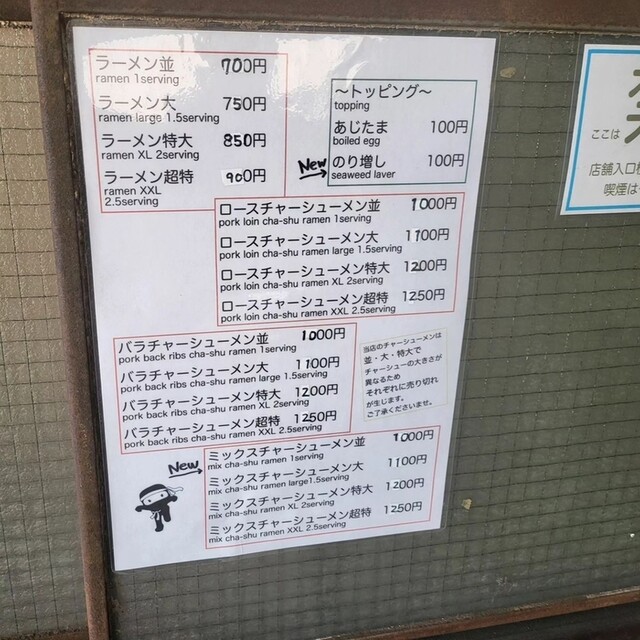 ラーメン並 700円
ramen 1serving
ラーメン大 750円
ramen large 1.5serving
ラーメン特大 850円
ramen XL 2serving
ラーメン超特 900円
ramen XXL
2.5serving
～トッピング～
topping
あじたま 100円
boiled egg
New のり増し 100円
seaweed laver
ロースチャーシューメン並 1000円
pork loin cha-shu ramen 1serving
ロースチャーシューメン大 1100円
pork loin cha-shu ramen large 1.5serving
ロースチャーシューメン特大 1200円
pork loin cha-shu ramen XL 2serving
ロースチャーシューメン超特 1250円
pork loin cha-shu ramen XXL 2.5serving
バラチャーシューメン並 1000円
pork back ribs cha-shu ramen 1serving
バラチャーシューメン大 1100円
pork back ribs cha-shu ramen large 1.5serving
バラチャーシューメン特大 1200円
pork back ribs cha-shu ramen XL 2serving
バラチャーシューメン超特 1250円
pork back ribs cha-shu ramen XXL 2.5serving
当店のチャーシューメンは
並・大・特大で
チャーシューの大きさが
異なるため
それぞれに売り切れ
が生じます。
ご了承くださいませ。
New ミックスチャーシューメン並 1000円
mix cha-shu ramen 1serving
ミックスチャーシューメン大 1100円
mix cha-shu ramen large1.5serving
ミックスチャーシューメン特大 1200円
mix cha-shu ramen XL 2serving
ミックスチャーシューメン超特 1250円
mix cha-shu ramen XXL 2.5serving
ここは
店舗入口
喫煙は